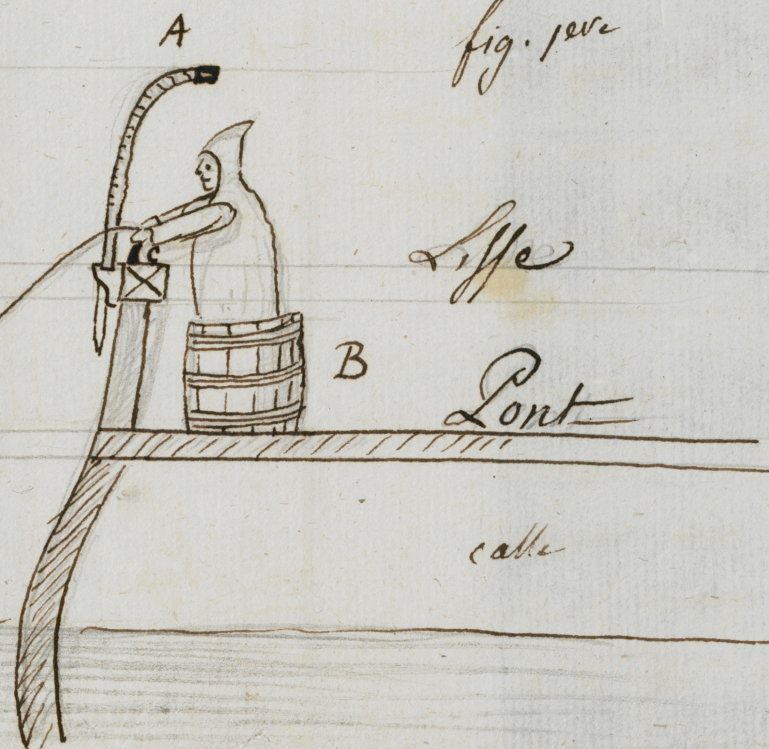 A
fig. 1ere
Lisse
B
Pont
calle